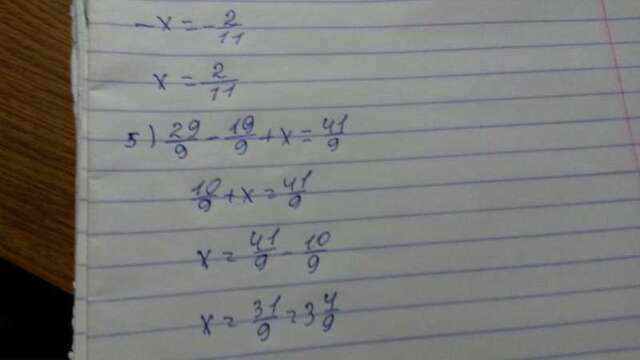 -x = -2/11
x = 2/11
5) 29/9 - 19/9 + x = 41/9
10/9 + x = 41/9
x = 41/9 - 10/9
x = 31/9 = 3 4/9